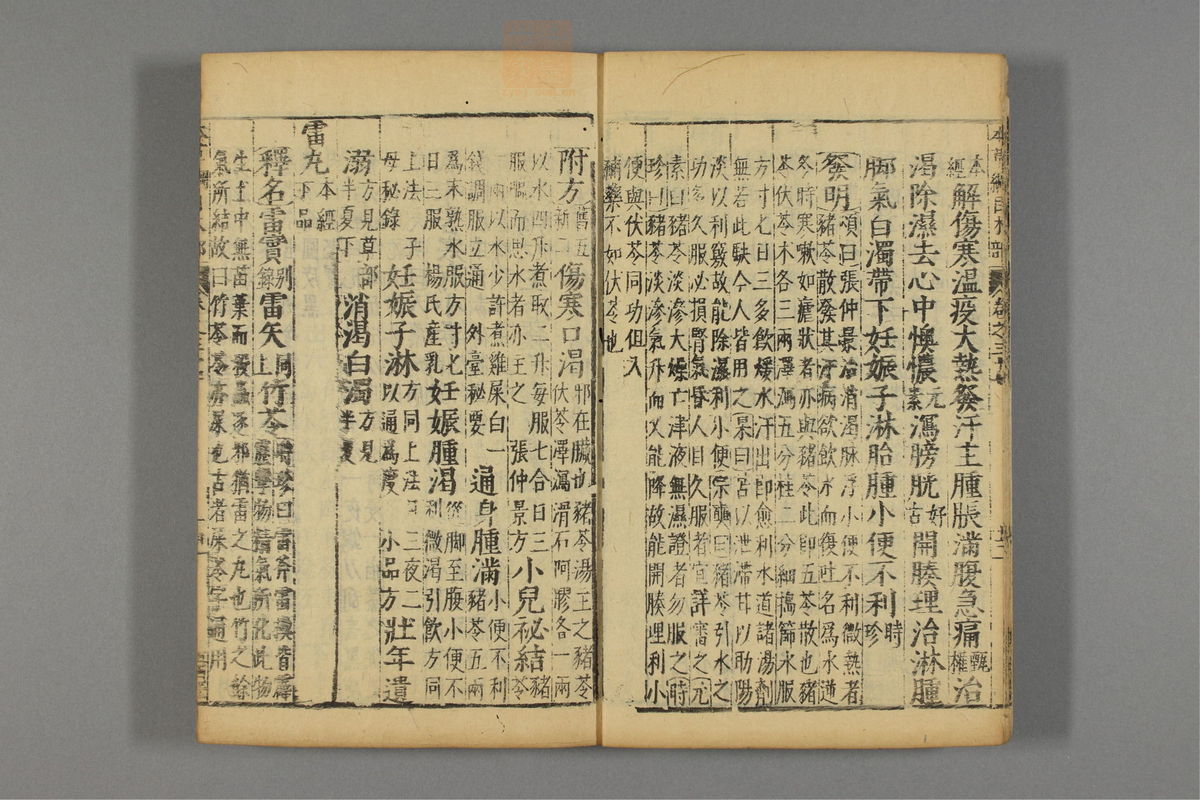 本經解傷寒温疫大熱發汗主腫脹滿腹急痛甄權治
渴除濕去心中懊憹元素瀉膀胱好古開腠理治淋腫
脚氣白濁帶下妊娠子淋胎腫小便不利時珍
發明頌曰張仲景治消渴脉浮小便不利微熱者
猪苓散發其汗病欲飲水而復吐名爲水逆
冬時寒嗽如瘧狀者亦與豬苓此即五苓散也豬
苓伏苓术各三兩澤瀉五分桂二分細擣篩水服
方寸七日三多飲煖水汗出即愈利水道諸湯劑
無若此駃今人皆用之杲曰苦以泄滯甘以助陽
淡以利竅故能除濕利小便宗奭曰豬苓引水之
功多久服必損腎氣昏人目久服者宜詳審之元
素曰豬苓淡滲大燥亡津液無濕證者勿服之時
珍曰豬苓淡滲氣升而又能降故能開腠理利小
便與伏苓同功但入
補藥不如伏苓也
附方舊五新二傷寒口渴邪在臟也豬苓湯主之豬苓
伏苓澤瀉滑石阿膠各一兩
以水四升煮取二升每服七合日三
服嘔而思水者亦主之張仲景方小兒秘結豬苓
一兩以水少許煮雞屎白一
錢調服立通外臺秘要通身腫滿小便不利豬苓五兩
爲末熟水服方寸七
日三服楊氏産乳妊娠腫渴從脚至腹小便不利微渴引飲方同
上法子母秘錄妊娠子淋方同上法日三夜二以通爲度小品方壯年遺
溺方見草部半夏下消渴白濁方見半夏
雷丸本經下品
釋名雷實別錄雷矢同上竹苓時珍曰雷斧雷楔皆霹
靂擊物精氣所化此物
生土中無苗葉而殺蟲逐邪猶雷之丸也竹之餘
氣所結故曰竹苓苓亦屎也古者屎苓字通用